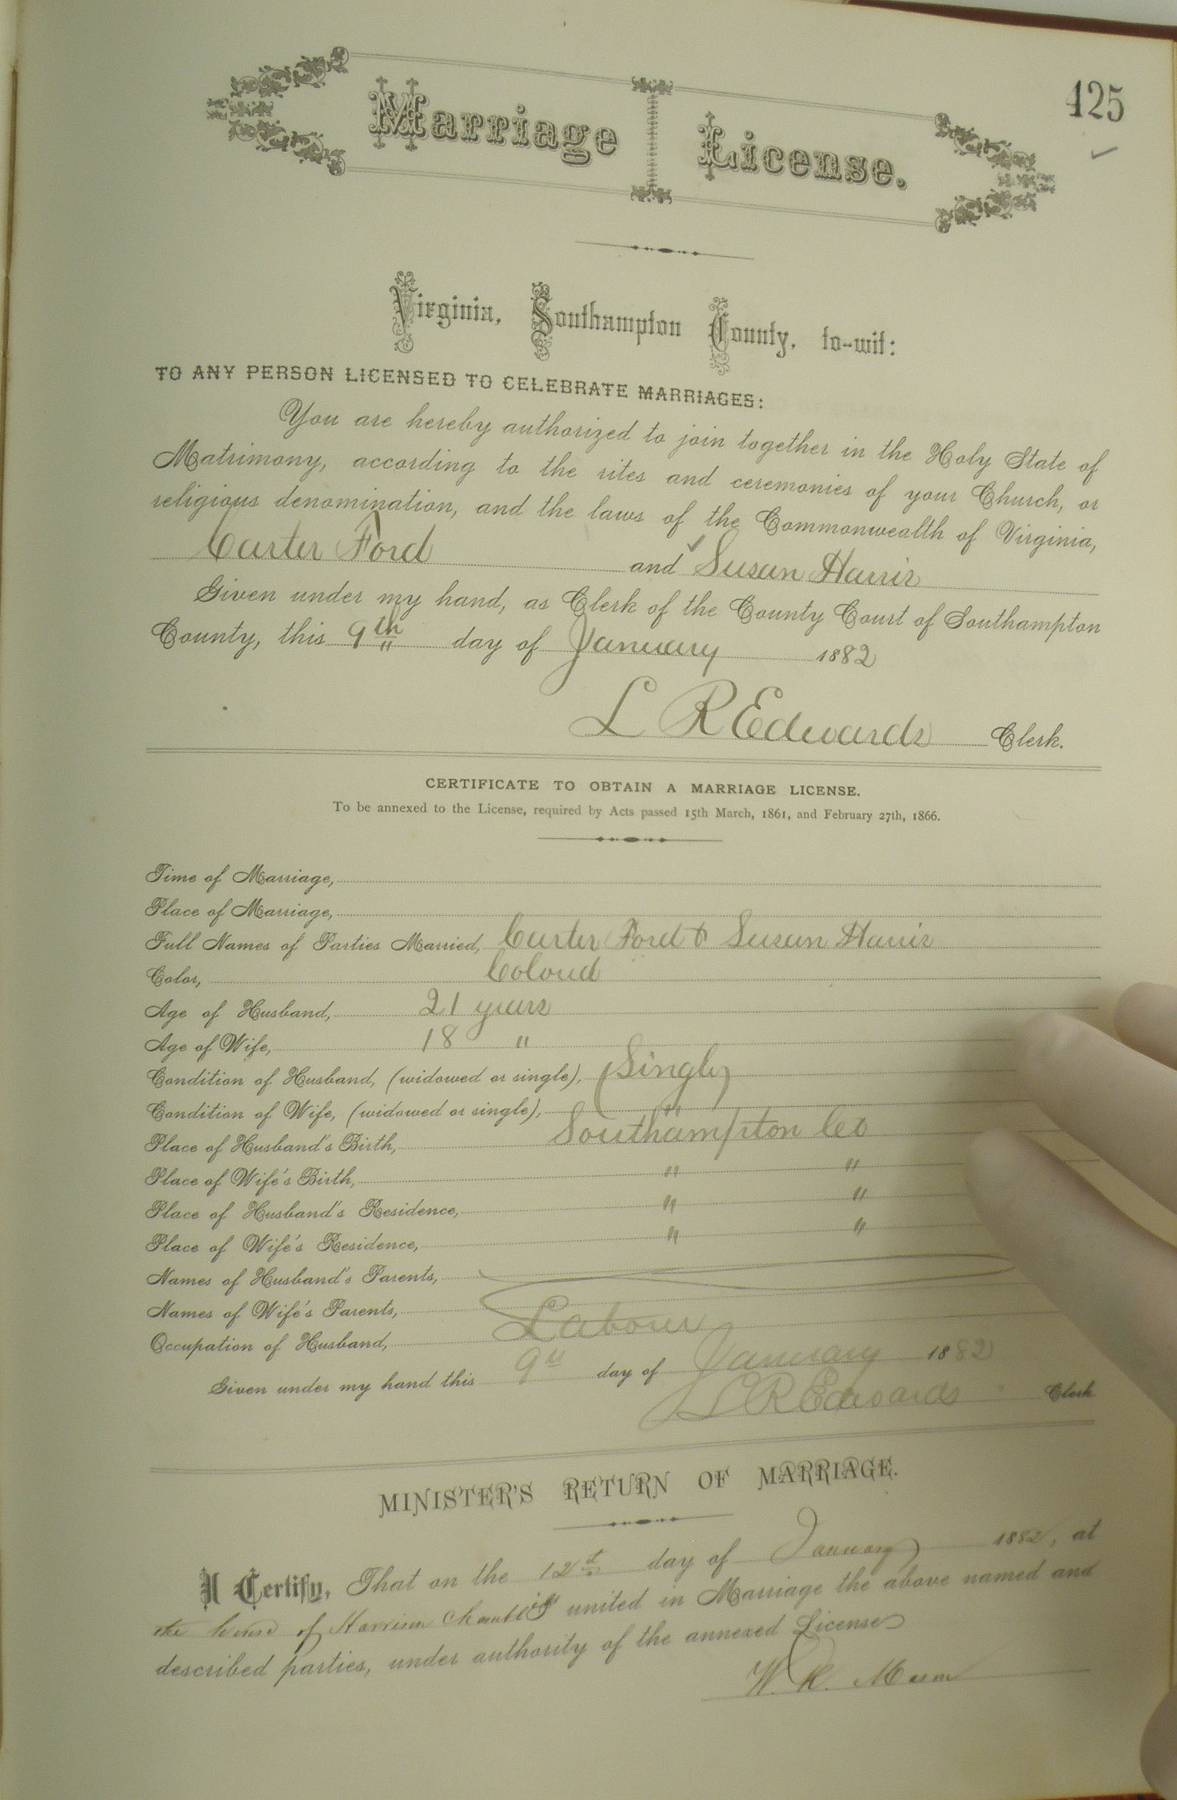 425
Marriage License.
Virginia, Southampton County, to-wit:
TO ANY PERSON LICENSED TO CELEBRATE MARRIAGES:
You are hereby authorized to join together in the Holy State of
Matrimony, according to the rites and ceremonies of your Church, or
religious denomination, and the laws of the Commonwealth of Virginia,
Carter Ford and Susan Harris
Given under my hand, as Clerk of the County Court of Southampton
County, this 9th day of January 1882
L R Edwards Clerk.
CERTIFICATE TO OBTAIN A MARRIAGE LICENSE.
To be annexed to the License, required by Acts passed 15th March, 1861, and February 27th, 1866.
Time of Marriage,
Place of Marriage,
Full Names of Parties Married, Carter Ford & Susan Harris
Color, Colored
Age of Husband, 21 years
Age of Wife, 18 "
Condition of Husband, (widowed or single), Single
Condition of Wife, (widowed or single), "
Place of Husband's Birth, Southampton Co
Place of Wife's Birth, " "
Place of Husband's Residence, " "
Place of Wife's Residence, " "
Names of Husband's Parents,
Names of Wife's Parents,
Occupation of Husband, Laborer
Given under my hand this 9th day of January 1882
L R Edwards Clerk
MINISTER'S RETURN OF MARRIAGE.
I Certify, That on the 12 day of January 1882, at
the house of Harrison united in Marriage the above named and
described parties, under authority of the annexed License
W. R. Mason